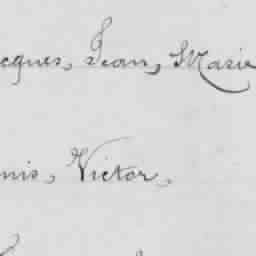 cques, Jean, Marie
nis, Victor,